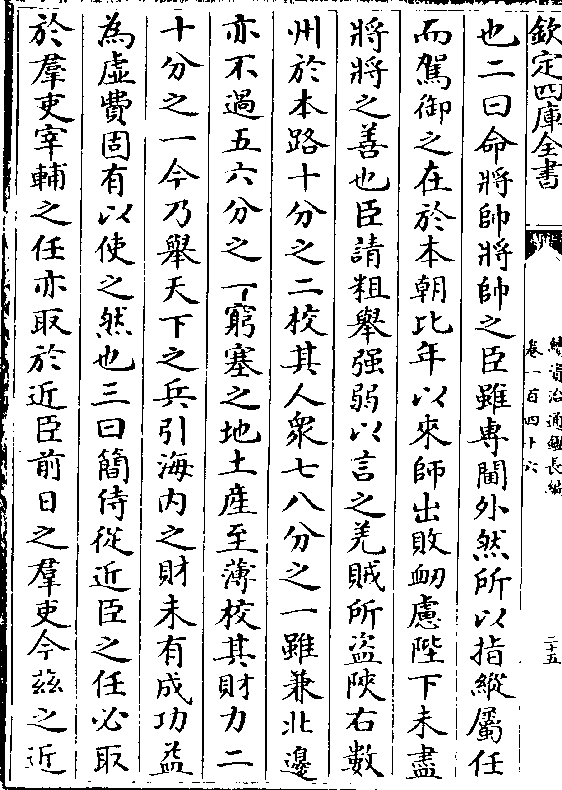 欽定四庫全書
續資治通鑑長編
卷一百四十六
二十五
也二曰命將帥將帥之臣雖專閫外然所以指縱屬任
而駕御之在於本朝比年以來師出敗衂慮陛下未盡
將將之善也臣請粗舉强弱以言之羌賊所盜陜右數
州於本路十分之二校其人衆七八分之一雖兼北邊
亦不過五六分之一窮塞之地土産至薄校其財力二
十分之一今乃舉天下之兵引海内之財未有成功益
為虚費固有以使之然也三曰簡侍從近臣之任必取
於羣吏宰輔之任亦取於近臣前日之羣吏今兹之近